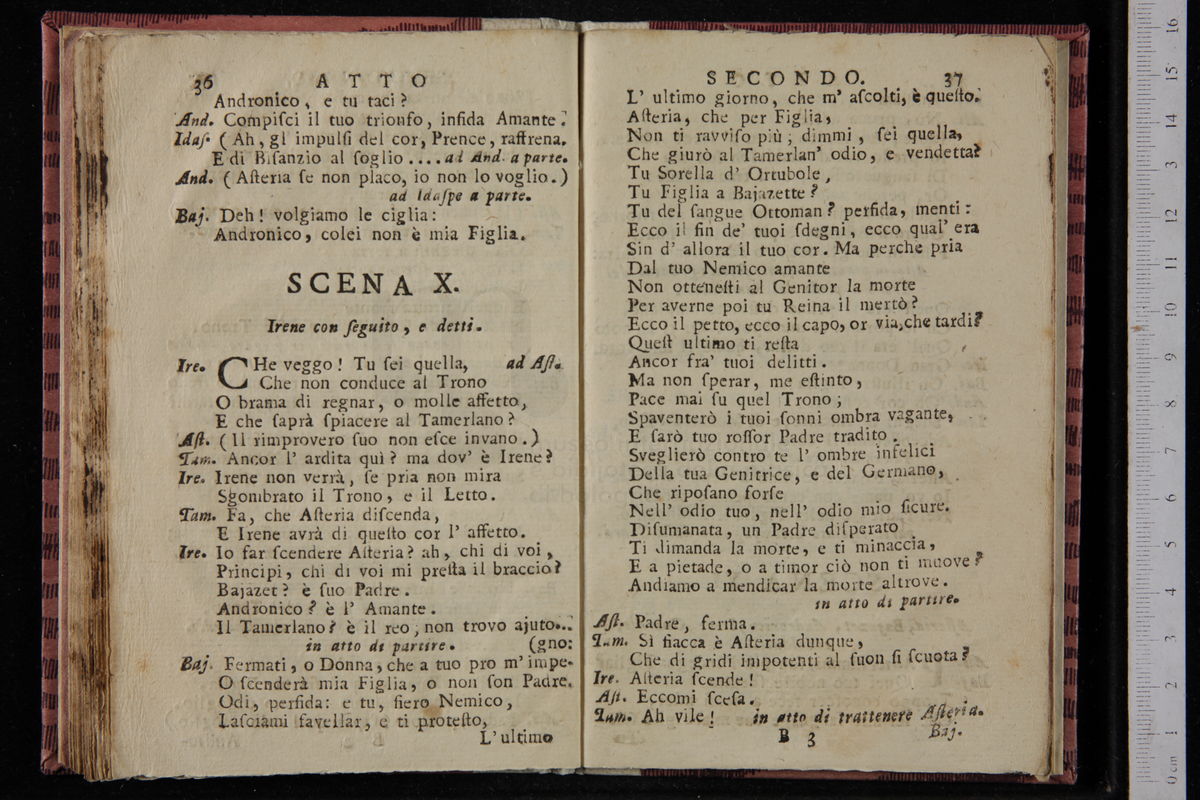 36 ATTO
Andronico, e tu taci?
And. Compiſci il tuo trionfo, infida Amante.
Idaſ. (Ah, gl impulſi del cor, Prence, raffrena.
E di Biſanzio al ſoglio .... ad And. a parte.
And. (Aſteria ſe non placo, io non lo voglio.)
ad Idaſpe a parte.
Baj. Deh! volgiamo le ciglia:
Andronico, colei non è mia Figlia.
SCENA X.
Irene con ſeguito, e detti.
Ire. CHe veggo! Tu ſei quella, ad Aſt.
Che non conduce al Trono
O brama di regnar, o molle affetto,
E che ſaprà ſpiacere al Tamerlano?
Aſt. (Il rimprovero ſuo non eſce invano.)
Tam. Ancor l' ardita quì? ma dov' è Irene?
Ire. Irene non verrà, ſe pria non mira
Sgombrato il Trono, e il Letto.
Tam. Fa, che Aſteria diſcenda,
E Irene avrà di queſto cor l' affetto.
Ire. Io far ſcendere Aſteria? ah, chi di voi,
Principi, chi di voi mi preſta il braccio?
Bajazet? è ſuo Padre.
Andronico? è l' Amante.
Il Tamerlano? è il reo; non trovo ajuto...
in atto di partire. (gno:
Baj. Fermati, o Donna, che a tuo pro m' impe-
O ſcenderà mia Figlia, o non ſon Padre.
Odi, perfida: e tu, fiero Nemico,
Laſciami favellar, e ti proteſto,
L' ultimo
SECONDO. 37
L' ultimo giorno, che m' aſcolti, è queſto.
Aſteria, che per Figlia,
Non ti ravviſo più; dimmi, ſei quella,
Che giurò al Tamerlan' odio, e vendetta?
Tu Sorella d' Ortubole,
Tu Figlia a Bajazette?
Tu del ſangue Ottoman? perfida, menti:
Ecco il fin de' tuoi ſdegni, ecco qual' era
Sin d' allora il tuo cor. Ma perche pria
Dal tuo Nemico amante
Non otteneſti al Genitor la morte
Per averne poi tu Reina il mertò?
Ecco il petto, ecco il capo, or via, che tardi?
Queſt ultimo ti reſta
Ancor fra' tuoi delitti.
Ma non ſperar, me eſtinto,
Pace mai ſu quel Trono;
Spaventerò i tuoi ſonni ombra vagante,
E ſarò tuo roſſor Padre tradito.
Sveglierò contro te l' ombre infelici
Della tua Genitrice, e del Germano,
Che ripoſano forſe
Nell' odio tuo, nell' odio mio ſicure.
Diſumanata, un Padre diſperato
Ti dimanda la morte, e ti minaccia,
E a pietade, o a timor ciò non ti muove?
Andiamo a mendicar la morte altrove.
in atto di partire.
Aſt. Padre, ferma.
Tam. Sì fiacca è Aſteria dunque,
Che di gridi impotenti al ſuon ſi ſcuota?
Ire. Aſteria ſcende!
Aſt. Eccomi ſceſa.
Tam. Ah vile! in atto di trattenere Aſteria.
B 3 Baj.
0 cm 1 2 3 4 5 6 7 8 9 10 11 12 13 14 15 16